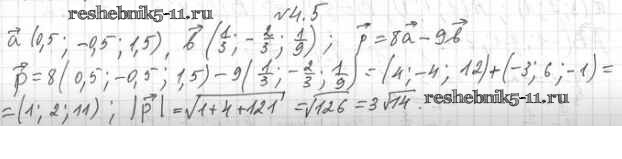 №4.5
reshebnik5-11.ru
a⃗ (0,5; -0,5; 1,5), b⃗ (1/3; -2/3; 1/9); p⃗ = 8a⃗ - 9b⃗
p⃗ = 8(0,5; -0,5; 1,5) - 9(1/3; -2/3; 1/9) = (4; -4; 12) + (-3; 6; -1) =
= (1; 2; 11); |p⃗| = √(1+4+121) = √126 = 3√14.
reshebnik5-11.ru